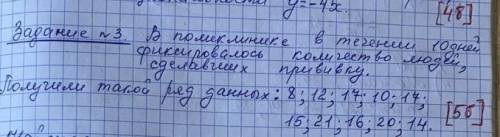 y=-4x.
[4б]
Задание №3. В поликлинике в течении 10 дней
фиксировалось количество людей,
сделавших прививку.
Получили такой ряд данных: 8; 12; 17; 10; 17;
15; 21; 16; 20; 14.
[5б]